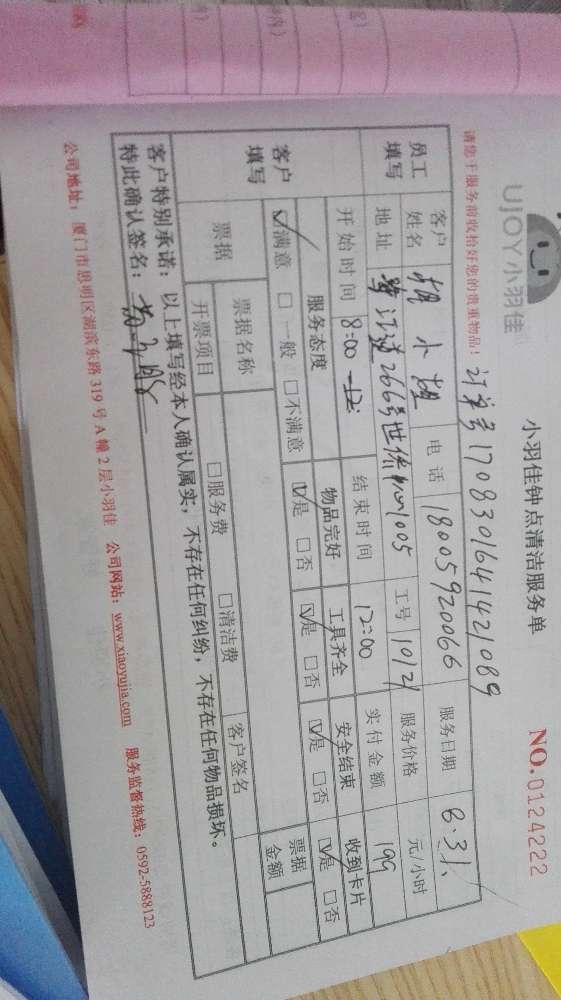 UJOY小羽佳
小羽佳钟点清洁服务单
NO.0124222
请您于服务前收拾好您的贵重物品！ 订单号170830164141421089
员工填写
客户姓名 小 电话 18005920066 服务日期 8.31.
地址 266号世侨 1005 工号 10121 服务价格 元/小时
开始时间 8:00 结束时间 12:00 实付金额 199
客户填写
服务态度 物品完好 工具齐全 安全结束 收到卡片
☑满意 □一般 □不满意 ☑是 □否 ☑是 □否 ☑是 □否 ☑是 □否
票据 票据名称 客户签名 票据金额
开票项目 □服务费 □清洁费
客户特别承诺：以上填写经本人确认属实，不存在任何纠纷，不存在任何物品损坏。
特此确认签名：
公司地址：厦门市思明区湖滨东路319号A幢2层小羽佳 公司网站：www.xiaoyujia.com 服务监督热线：0592-5888123